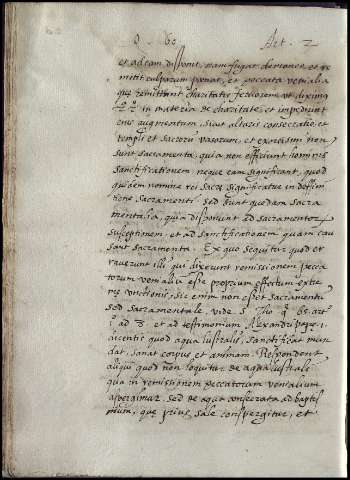 q. 60 Art. 2
et ad eam disponit, nam fugat demones et re
mitit culparum poenas, et peccata venialia
que remittunt charitatis fervorem ut diximus
in materia de charitate, et impediunt
eius augmentum, sicut altaris consecratio et
templi et sacrorum vasorum, et exorcismi non
sunt sacramenta, quia non efficiunt hominis
sanctificationem, neque eam significant, quod
quidem nomine rei sacre significatur in deffini
tione sacramenti sed sunt quedam sacra
mentalia, quia disponunt ad sacramentorum
susceptionem et ad sanctificationem quam cau
sant sacramenta. Ex quo sequitur quod er
raverunt illi qui dixerunt remissionem pecca
torum venialium esse proprium effectum extre
me unctionis, sic enim non esset sacramentum
sed sacramentale. vide S. Tho. q. 65 art.
1 ad 8 et ad testimonium Alexandri pape
dicentis quod aqua lustralis, sanctificat mun
dat, sanat corpus et animam. Respondent
aliqui quod non loquitur de aqua lustrale
qua in remissionem peccatorum venialium
aspergimur sed de aqua consecrata ad baptis
mum, que prius sale conspergitur, et